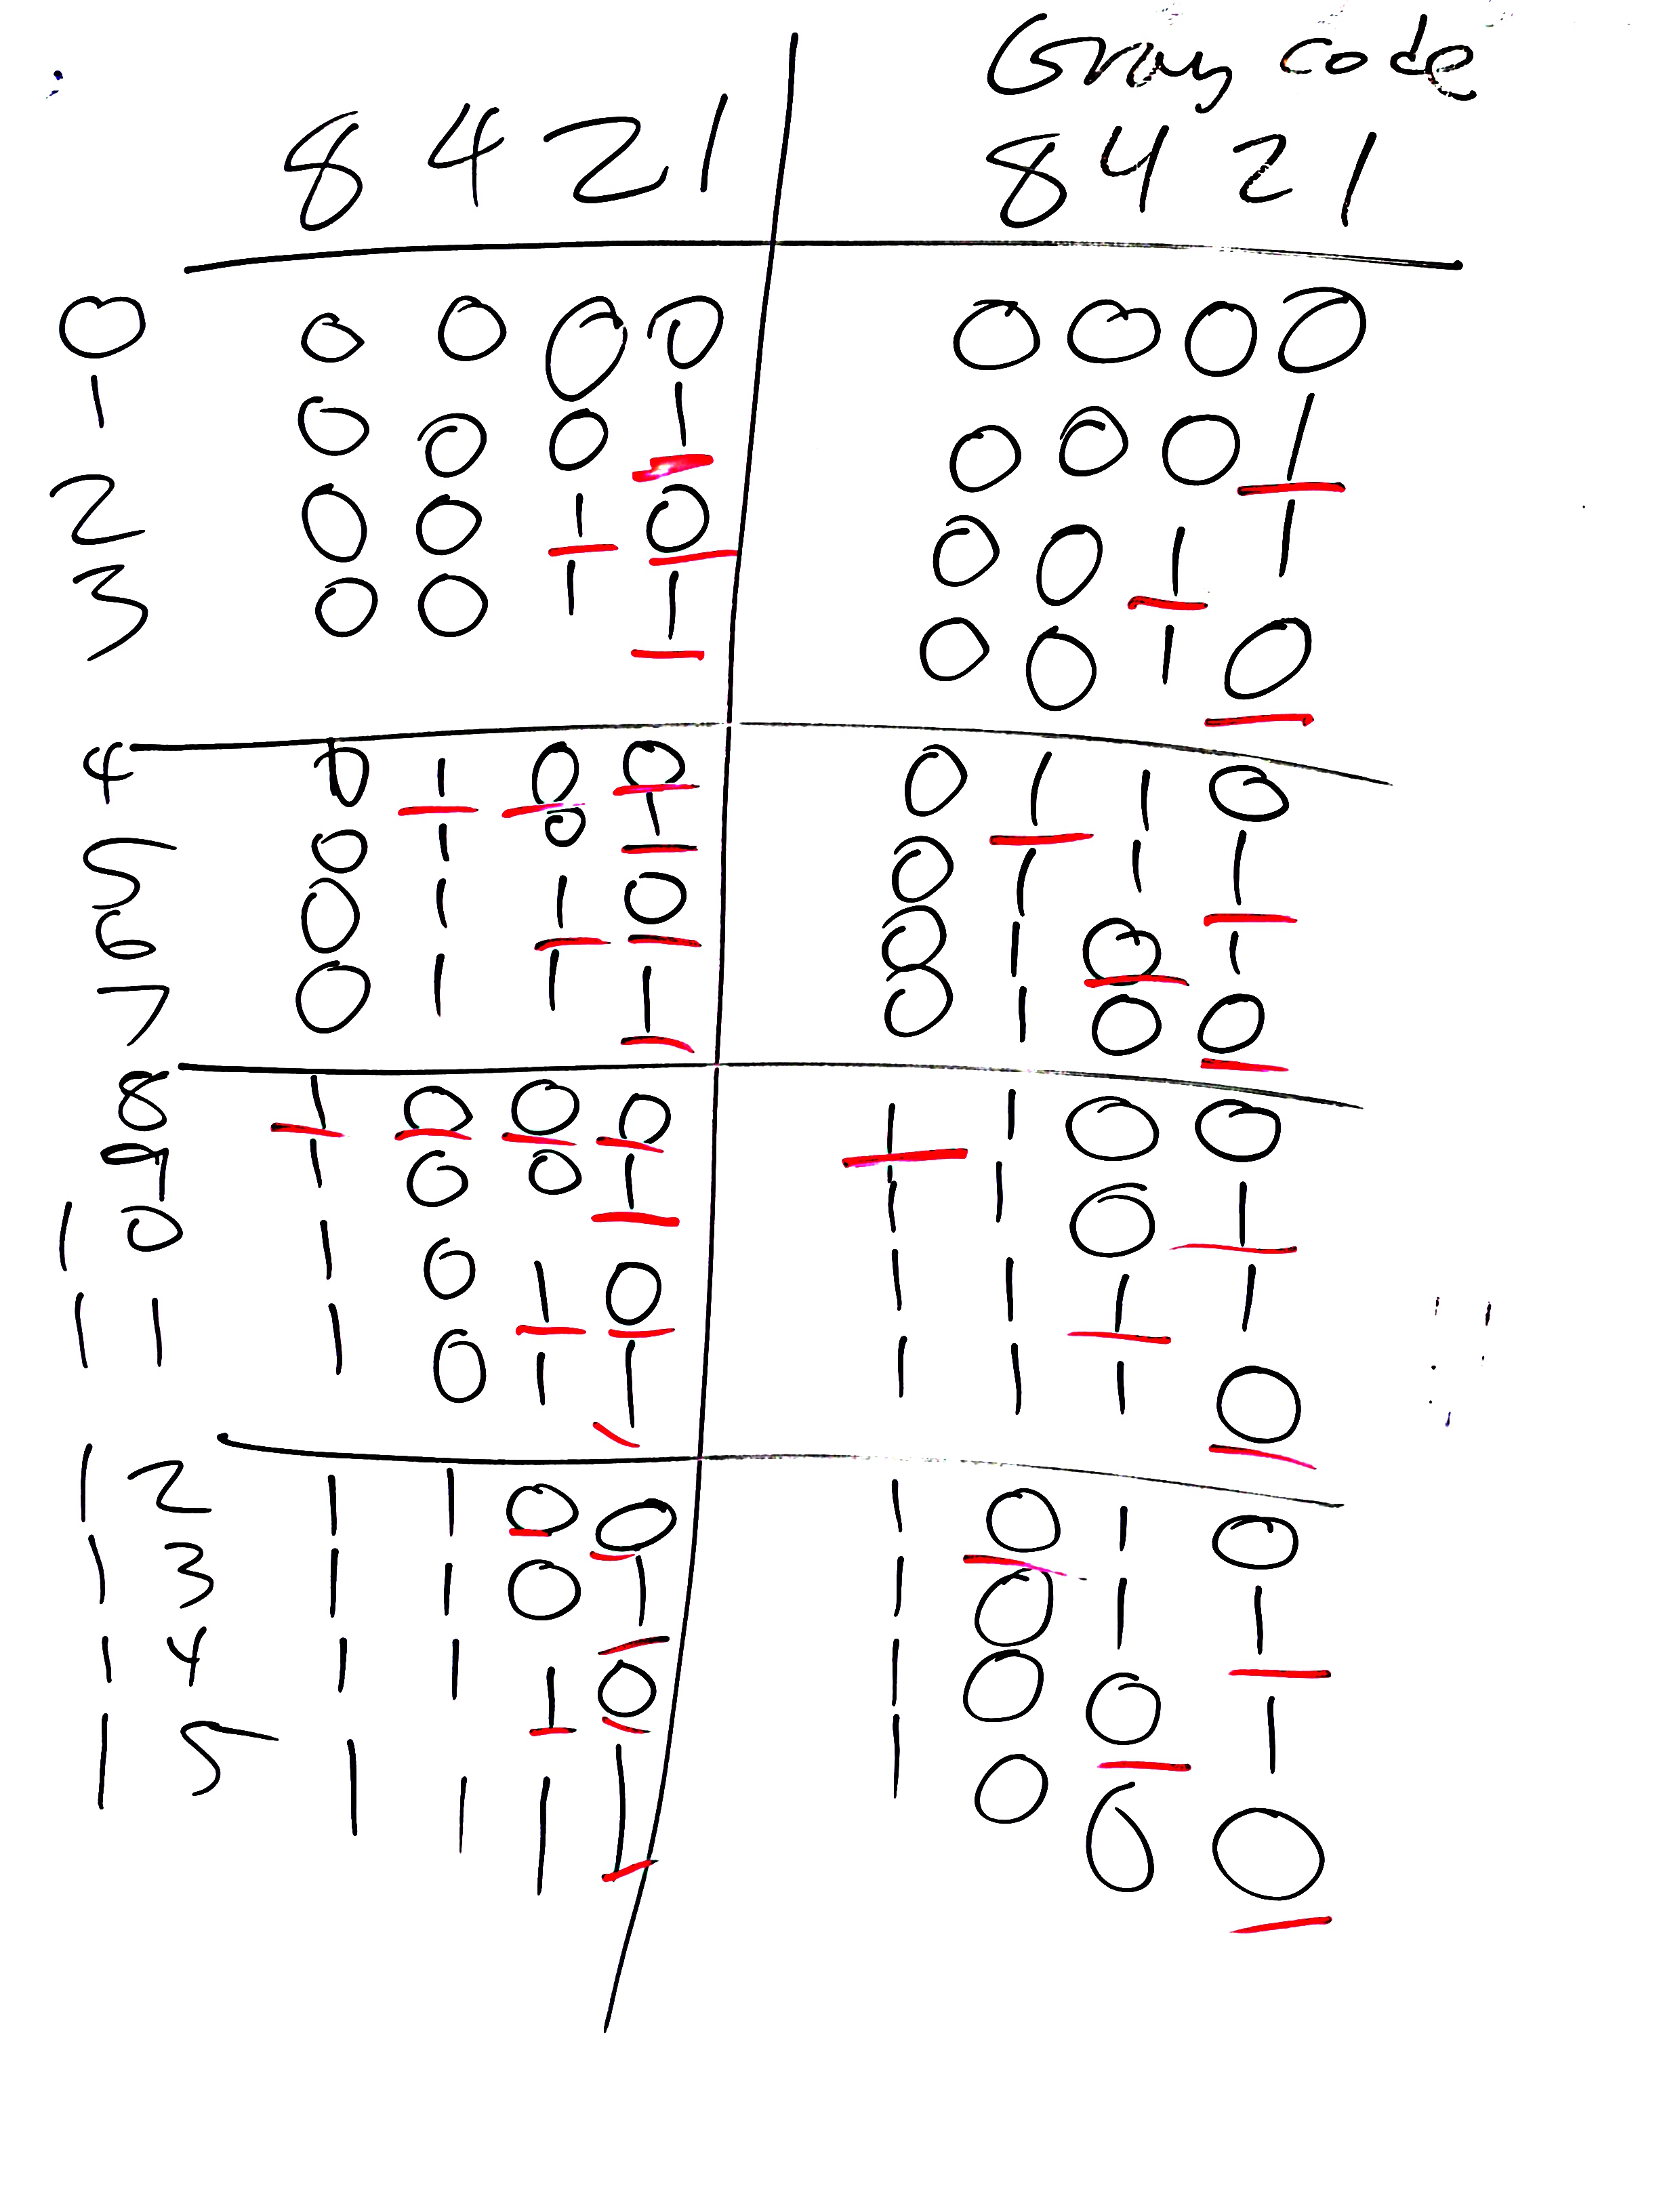 Gray code
8 4 2 1 8 4 2 1
0 0 0 0 0 0 0 0 0
1 0 0 0 1 0 0 0 1
2 0 0 1 0 0 0 1 1
3 0 0 1 1 0 0 1 0
4 0 1 0 0 0 1 1 0
5 0 1 0 1 0 1 1 1
6 0 1 1 0 0 1 0 1
7 0 1 1 1 0 1 0 0
8 1 0 0 0 1 1 0 0
9 1 0 0 1 1 1 0 1
10 1 0 1 0 1 1 1 1
11 1 0 1 1 1 1 1 0
12 1 1 0 0 1 0 1 0
13 1 1 0 1 1 0 1 1
14 1 1 1 0 1 0 0 1
15 1 1 1 1 1 0 0 0